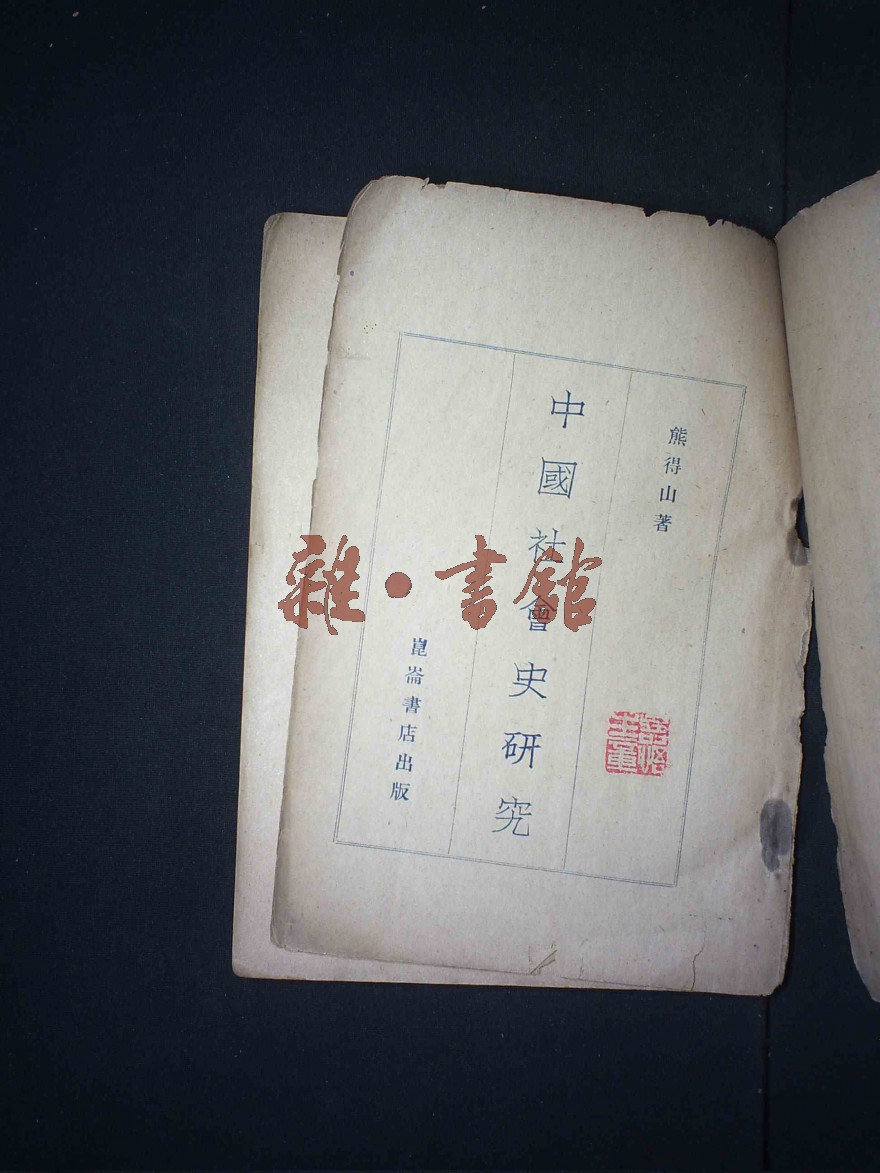 熊得山著
中國社會史研究
崑崙書店出版
雜·書館